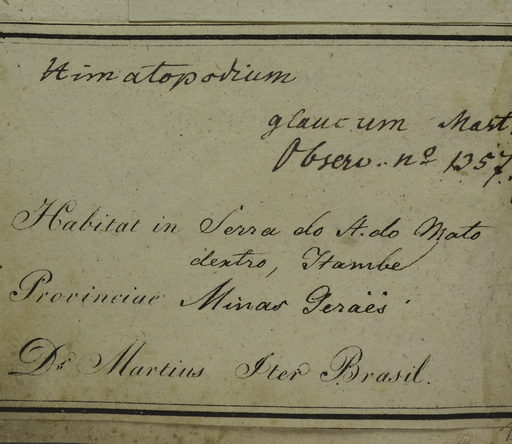 Himatopodium
glaucum Mart
Observ. nº 1357.
Habitat in Serra do A. do Mato
dentro, Itambe
Provinciae Minas Geraës
Dr. Martius Iter Brasil.